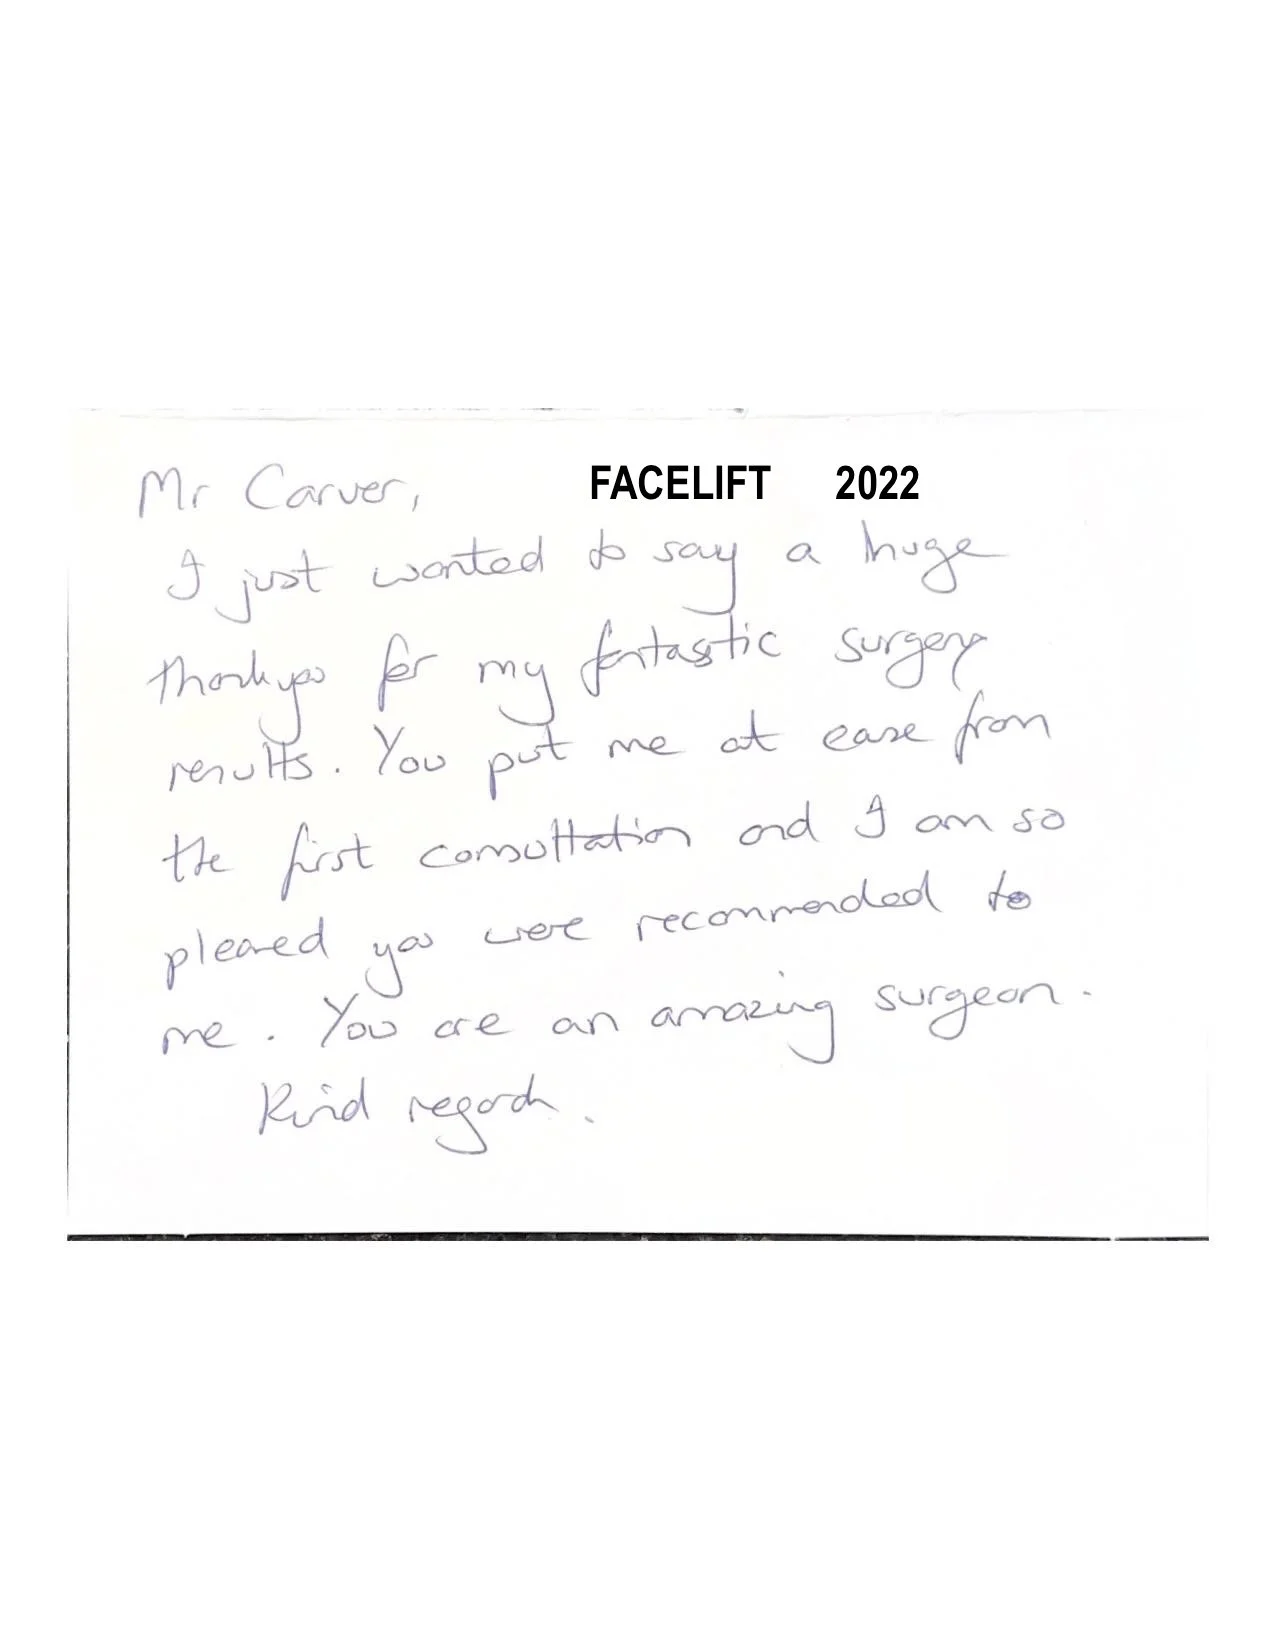 Mr Carver,
FACELIFT 2022
I just wanted to say a huge
thankyou for my fantastic surgery
results. You put me at ease from
the first consultation and I am so
pleased you were recommended to
me. You are an amazing surgeon.
Kind regards.